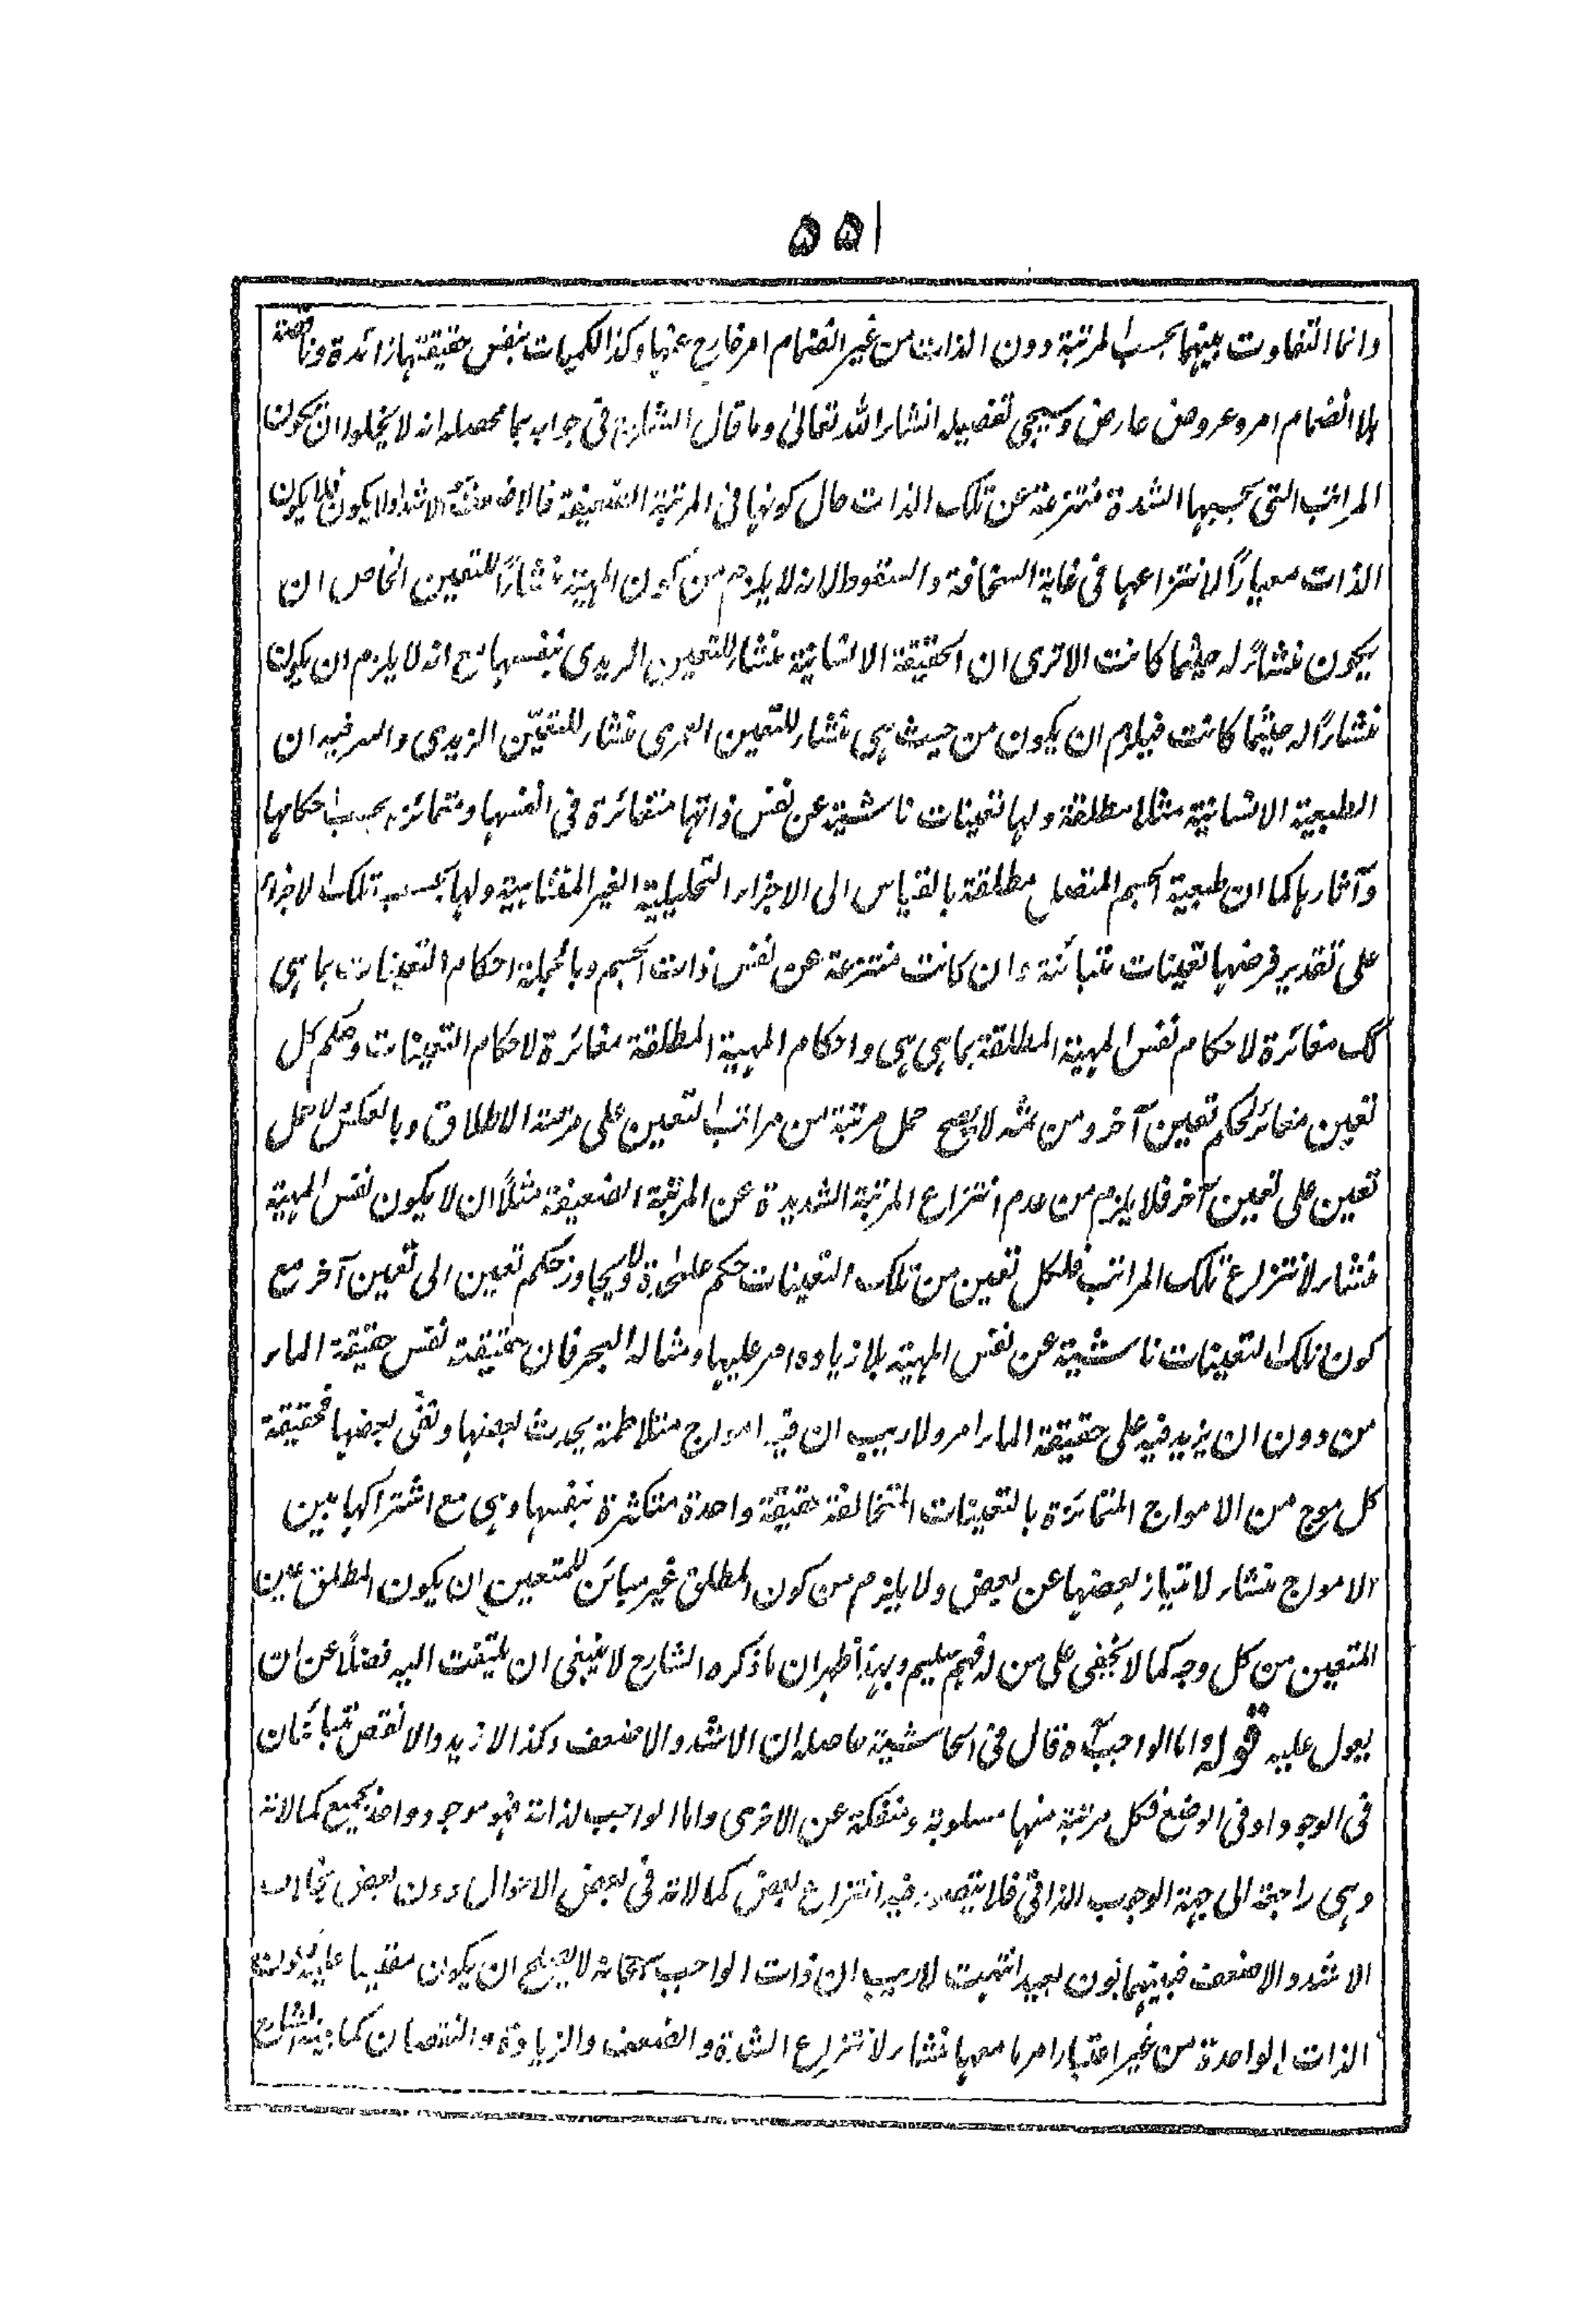 ۱۵۵
وانما التفاوت بينهما بحسب المرتبة دون الذات من غير انضمام امر خارج عنها وكذا الكميات بنفس حقيقتها زائدة وناقصة
بلا انضمام امر وعروض عارض وسيجئ تفصيله انشاء الله تعالى وما قال الشارح في جوابه بما محصله انه لا يخلو اما ان يكون
المراتب التى بحسبها الشدة منتزعة عن تلك الذات حال كونها في المرتبة الضعيفة فالاضعف الاشد او لا يكون فلا يكون
الذات معيارًا لانتزاعها في غاية السخافة والسقوط لانه لا يلزم من كون المهية منشأرًا للتعين الخاص ان
يكون منشأ له حيثما كانت الا ترى ان الحقيقة الانسانية منشاء للتعين الزيدى بنفسها مع انه لا يلزم ان يكون
منشاءً له حيثما كانت فيلزم ان يكون من حيث هى منشاء للتعين العمرى منشاء للتعين الزيدى والسر فيه ان
الطبيعية الانسانية مثلا مطلقة ولها تعينات ناشية عن نفس ذاتها متغائرة في انفسها ومتمائزة بحسب احكامها
وآثارها كما ان طبعية الجسم المتصل مطلقة بالقياس الى الاجزاء التحليلية الغير المتناهية ولها بحسب تلك الاجزاء
على تقدير فرضها تعينات متبائنة وان كانت منتزعة عن نفس ذات الجسم وبالجملة احكام التعينات بما هى
كك مغائرة لاحكام نفس المهية المطلقة بما هى هى واحكام المهية المطلقة مغائرة لاحكام التعينات وحكم كل
تعين مغائر لحكم تعين آخر ومن ثمه لا يصح حمل مرتبة من مراتب التعين على مرتبة الاطلاق وبالعكس ولا حمل
تعين على تعين آخر فلا يلزم من عدم انتزاع المرتبة الشديدة عن المرتبة الضعيفة مثلًا ان لا يكون نفس المهية
منشاء لانتزاع تلك المراتب فلكل تعين من تلك التعينات حكم علحدة ولا يجاوز حكم تعين الى تعين آخر مع
كون تلك التعينات ناشية عن نفس المهية بلا زيادة امر عليها ومثاله البحر فان حقيقته نفس حقيقة الماء
من دون ان يزيد فيه على حقيقة الماء امر ولا ريب ان فيه امواج متلاطمة يحدث بعضها وتفنى بعضها فحقيقة
كل موج من الامواج المتمائزة بالتعينات المتخالفة حقيقة واحدة متكثرة بنفسها وهى مع اشتراكها بين
الامواج منشاء لامتياز بعضها عن بعض ولا يلزم من كون المطلق غير مبائن للمتعين ان يكون المطلق عين
المتعين من كل وجه كما لا يخفى على من له فهم سليم وبهذا ظهر ان ما ذكره الشارح لا ينبغى ان يلتفت اليه فضلًا عن ان
يعول عليه قوله واما الواجب آه قال في الحاشية حاصله ان الاشد والاضعف وكذا الازيد والانقص متبائنان
في الوجود او في الوضع فكل مرتبة منها مسلوبة ومنفكة عن الاخرى واما الواجب لذاته فهو موجود واحد بجميع كمالاته
وهى راجعة الى جهة الوجوب الذاتى فلا يتصور فيه انتزاع بعض كمالاته في بعض الاحوال دون بعض بخلاف
الاشد والاضعف فبينهما بون بعيد انتهيت لا ريب ان ذات الواجب سبحانه لا يصلح ان يكون مقيسا عليه
الذات الواحدة من غير اعتبار امر ما معها منشاء لانتزاع الشدة والضعف والزيادة والنقصان كما بينه الشارح